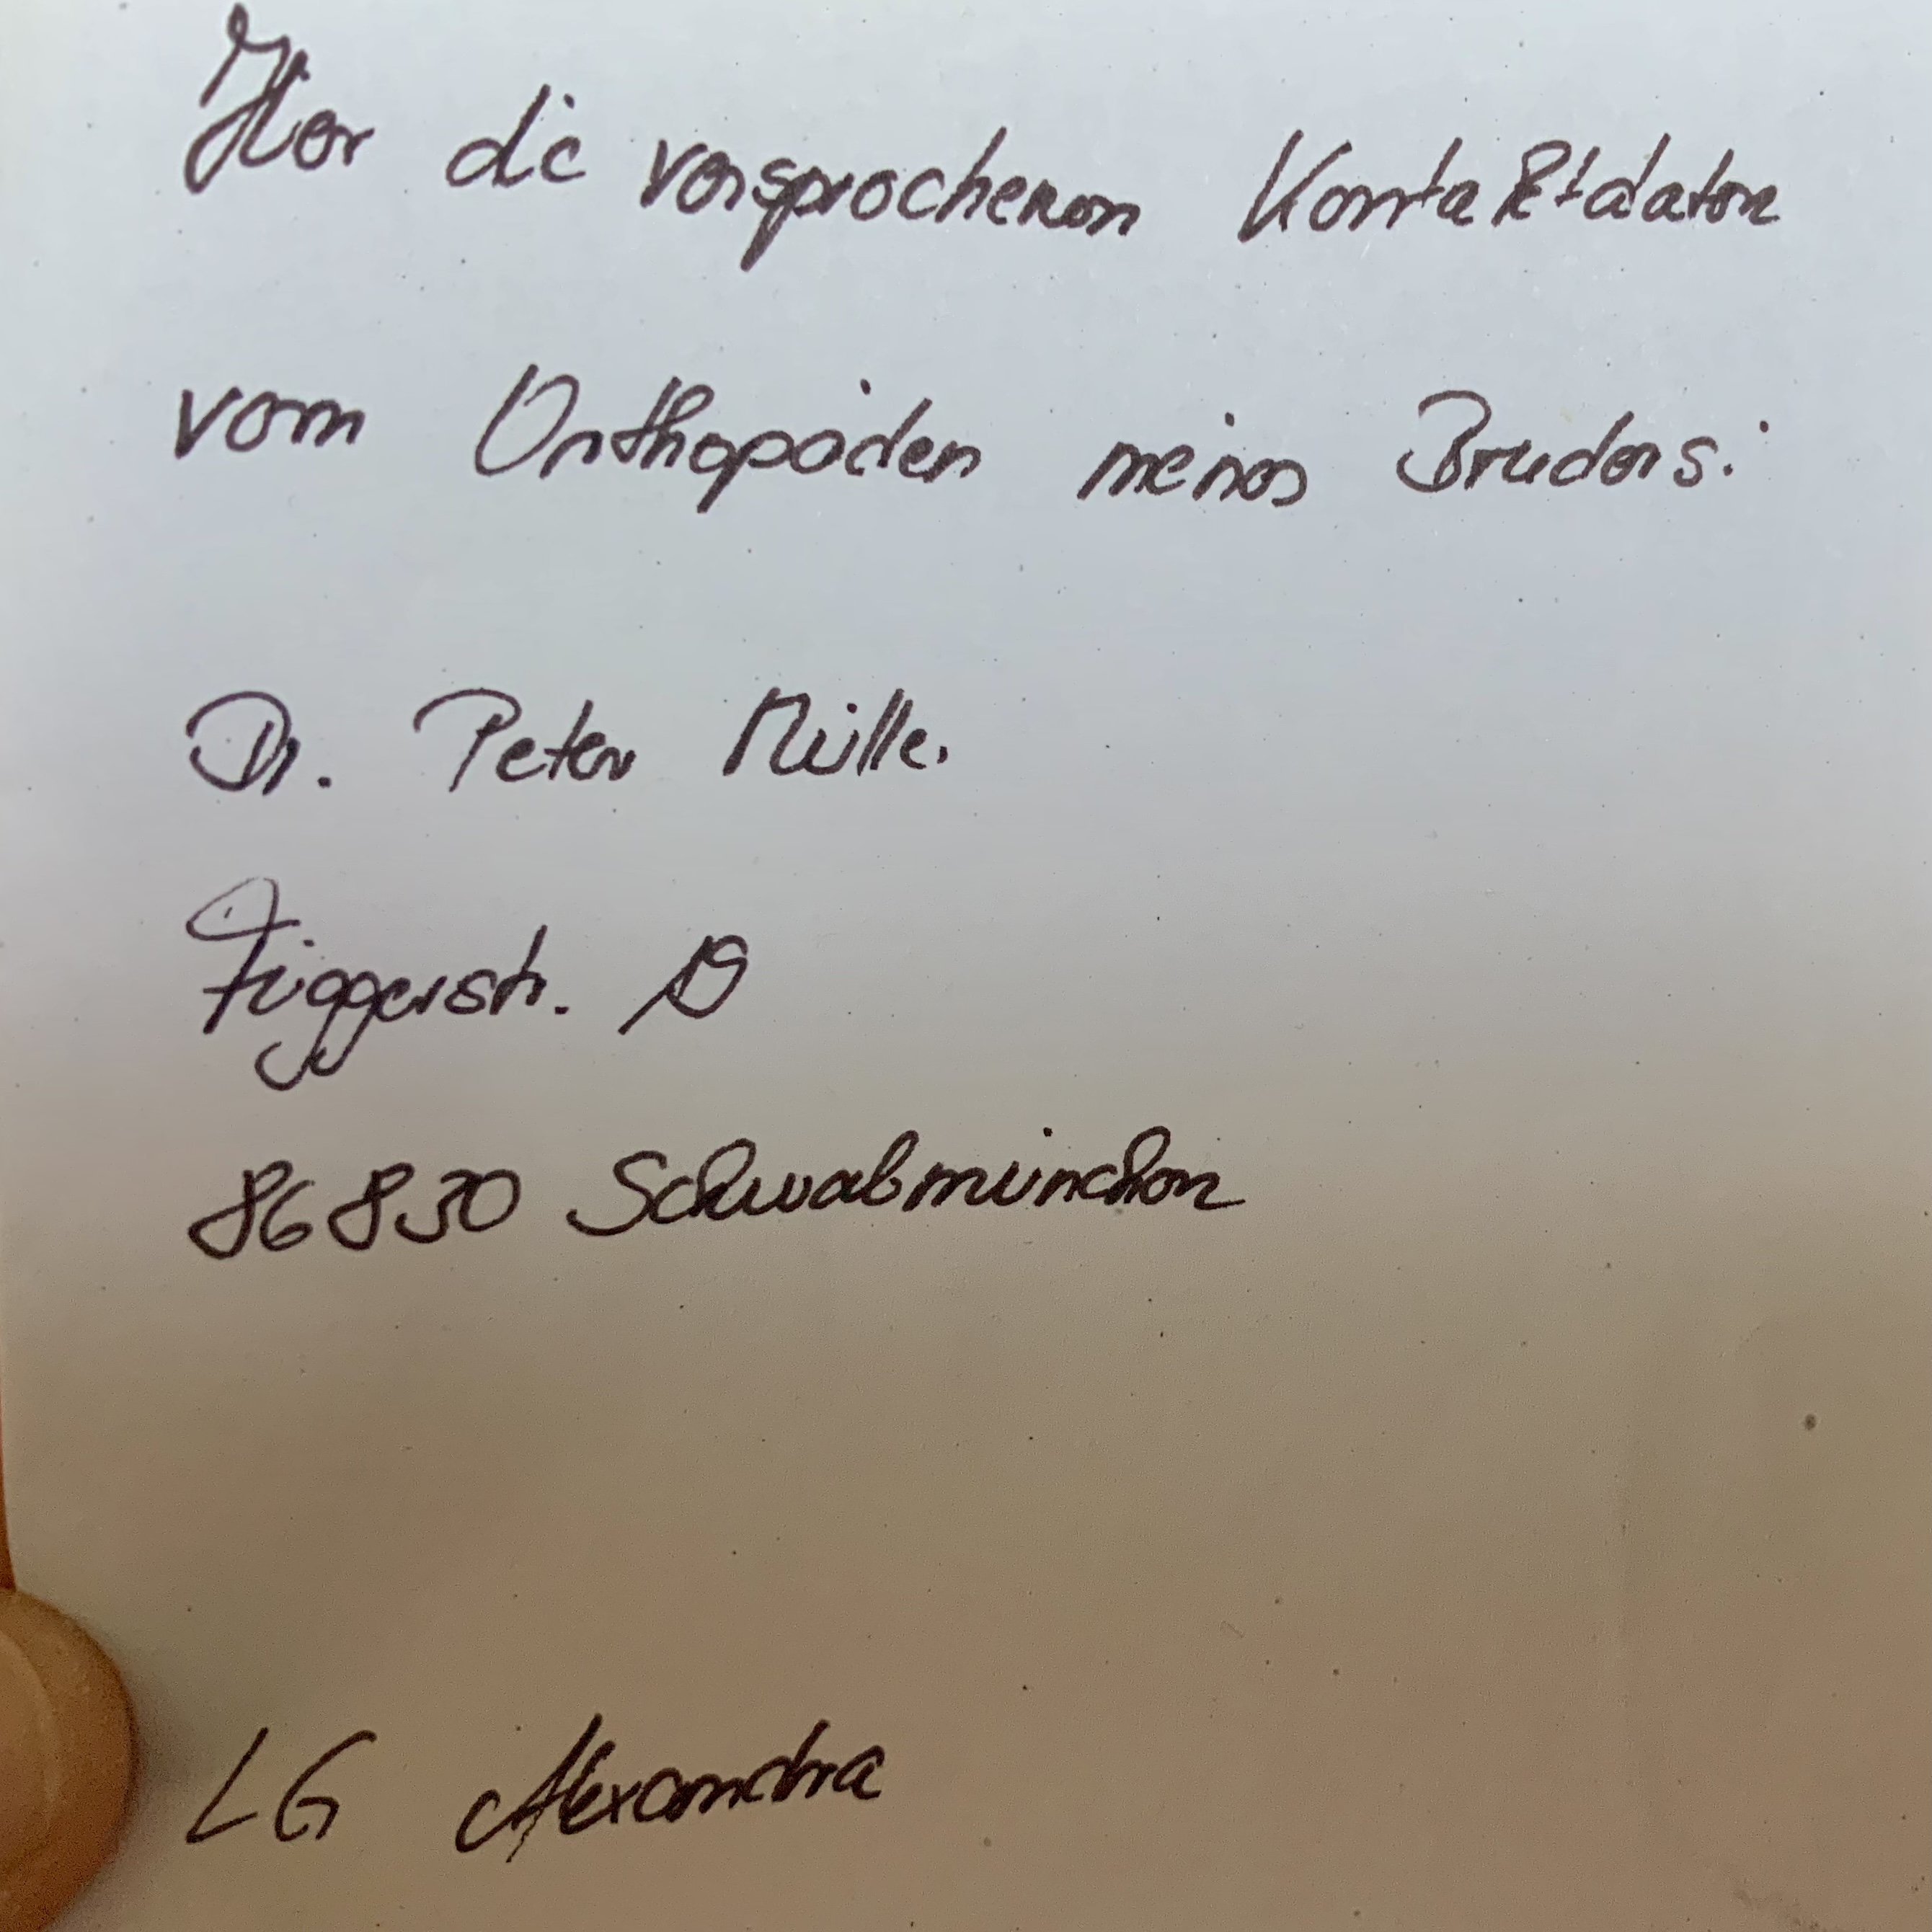 Hier die versprochenen Kontaktdaten
vom Orthopäden meines Bruders:
Dr. Peter Müller
Fuggerstr. 19
86830 Schwabmünchen
LG Alexandra